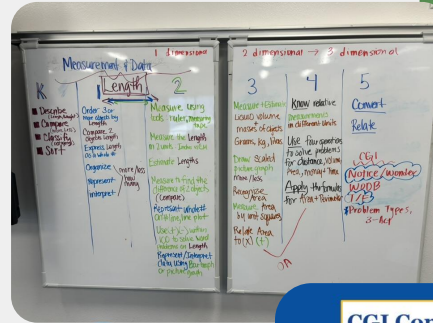 1 dimensional
Measurement & Data
K
Describe
Compare
Classify
Sort
1
Length
Order 3 or
more objects by
Length
Compare 2
objects Length
Express Length
as a whole #
Organize
Represent
Interpret
more/less
how
many
2
Measure using
tools - rulers, measuring
tape
Measure the Length
in 2 units
Estimate Lengths
Measure to find the
difference of 2 objects
(compare)
Represent whole #
on
line plot
Use (+) (-) within
100 to solve word
problems on Length
Represent/Interpret
data using Bar graph
or picture graph
2 dimensional → 3 dimensional
3
Measure + Estimate
Liquid volume
+
masses of objects
Grams, kg, liters
Draw Scaled
picture graph
more/less
Recognize
Area
Measure Area
by unit squares
Relate Area
to (x) (+)
4
Know relative
measurements
in different units
Use four operations
to solve problems
for distance, volume,
money + time
Apply the formulas
for Area + Perimeter
5
Convert
Relate
CGI
Notice/wonder
WODB
T/F
Problem Types,
3-Act
CGI Con